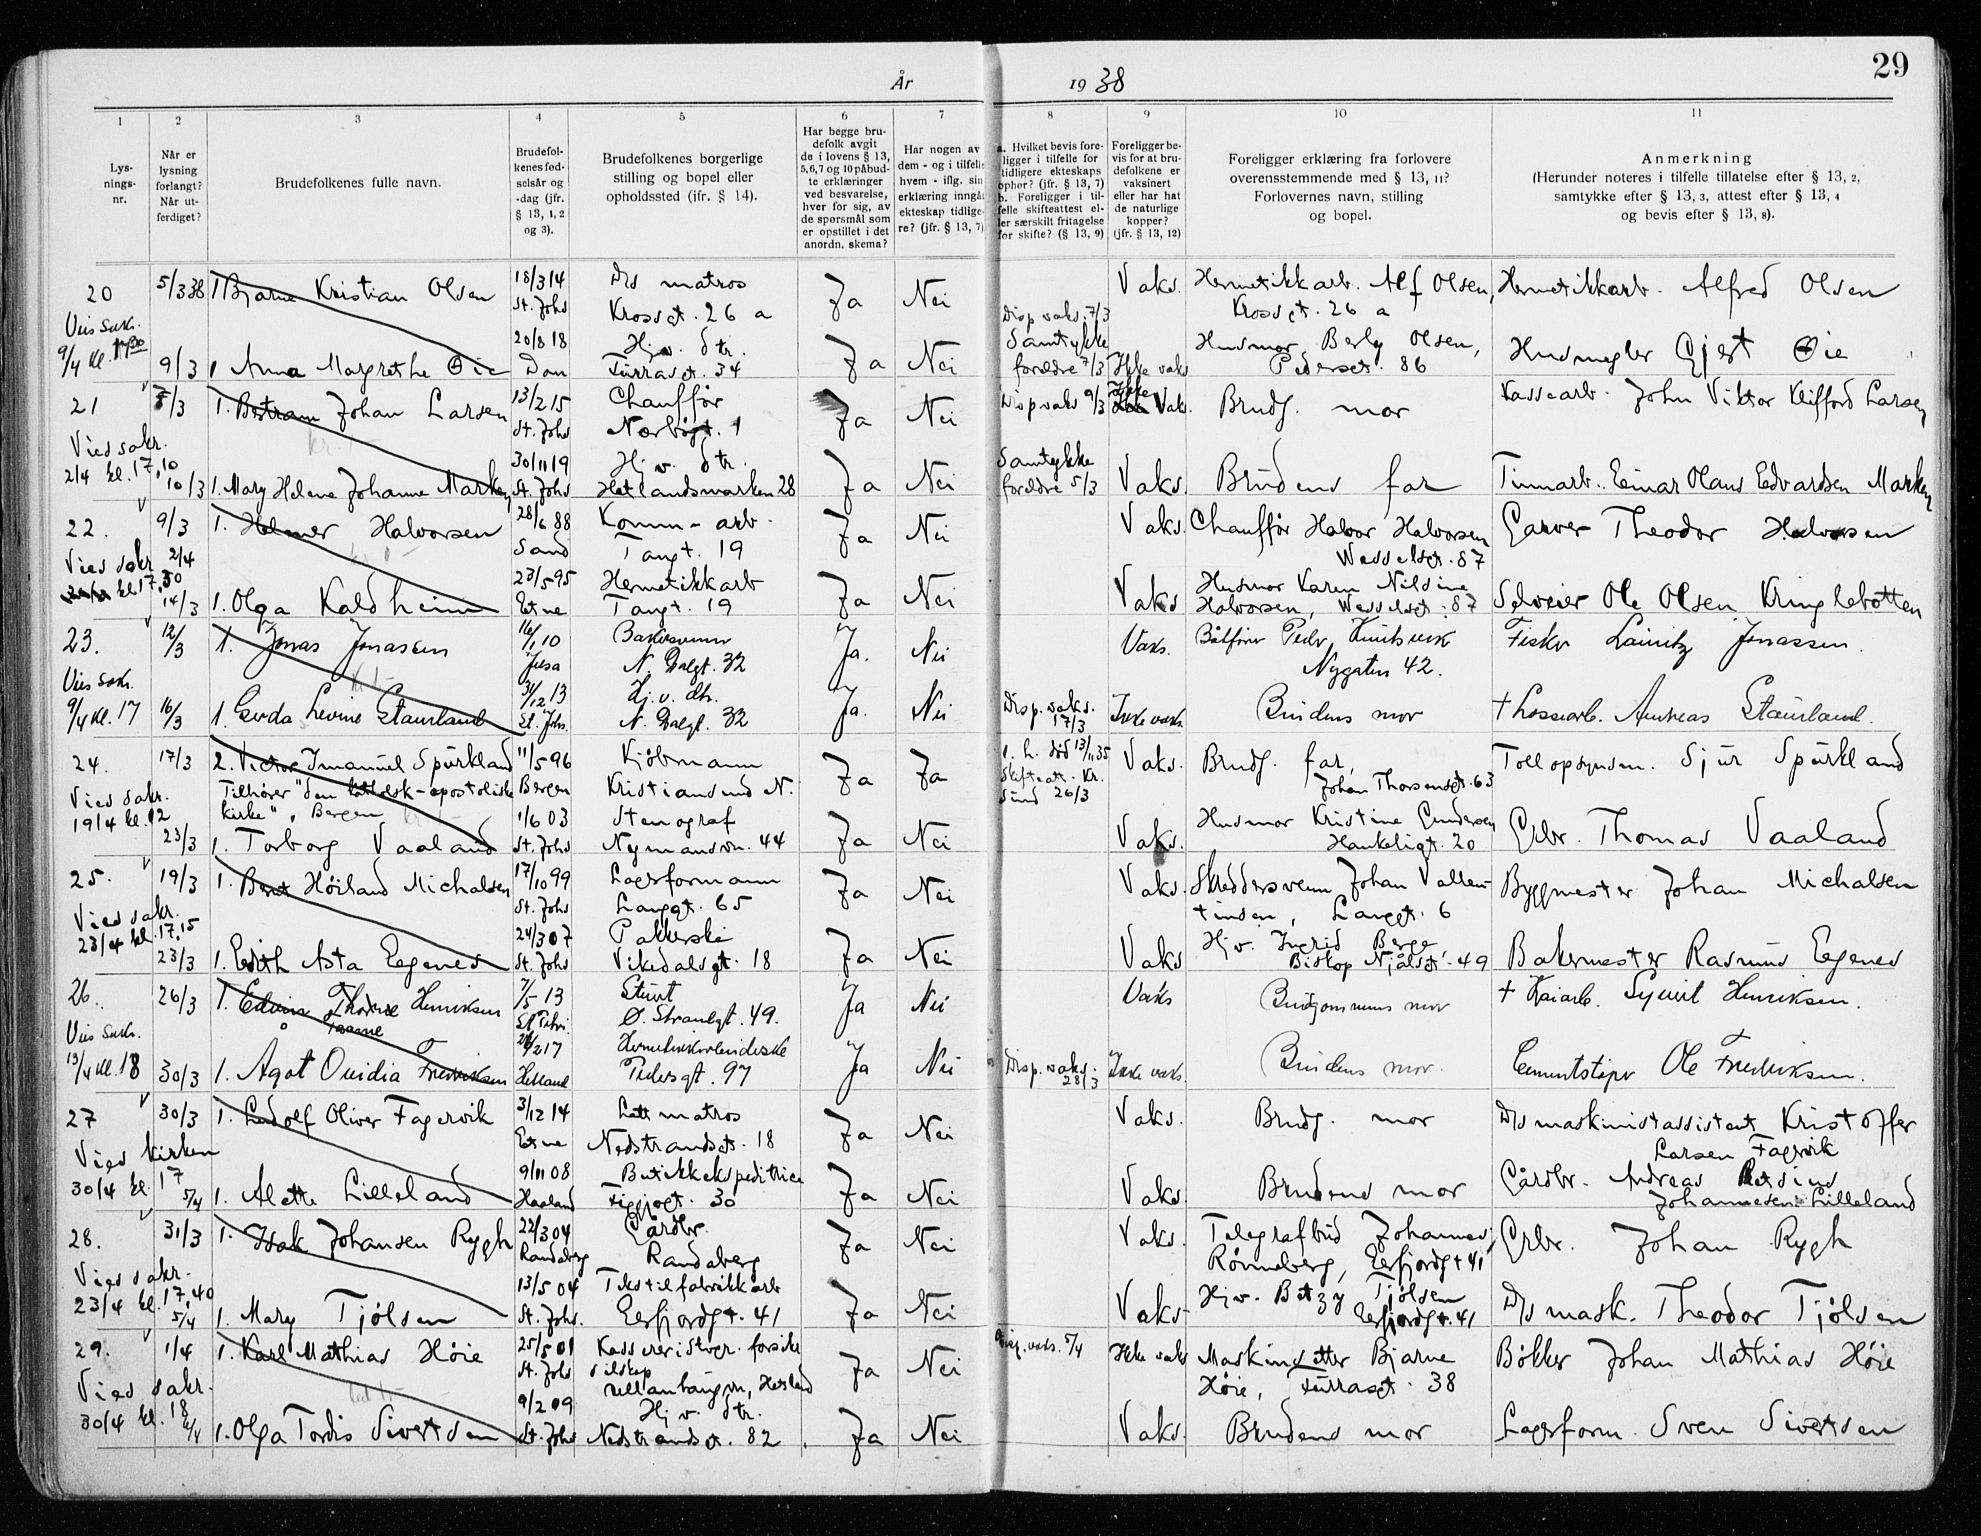 29
År 1938
1 2 3 4 5 6 7 8 9 10 11
Lys-
nings-
nr.
Når er
lysning
forlangt?
Når ut-
ferdiget?
Brudefolkenes fulle navn.
Brudefol-
kenes fød-
selsår og
-dag (jfr.
§ 13, 1, 2
og 3).
Brudefolkenes borgerlige
stilling og bopel eller
opholdssted (jfr. § 14).
Har begge bru-
defolk avgit
de i lovens § 13,
5,6,7 og 10 påbud-
te erklæringer
ved besvarelse,
hver for sig, av
de spørsmål som
er opstillet i det
anordn. skema?
Har nogen av
dem - og i tilfelle
hvem - iflg. sin
erklæring inngåt
ekteskap tidlige-
re? (jfr. § 13, 7)
a. Hvilket bevis fore-
ligger i tilfelle for
tidligere ekteskaps
ophør? (jfr. § 13, 7)
b. Foreligger i til-
felle skifteattest el-
ler særskilt fritagelse
for skifte? (§ 13, 9)
Foreligger be-
vis for at bru-
defolkene er
vaksinert
eller har hat
de naturlige
kopper?
(jfr. § 13, 12)
Foreligger erklæring fra forlovere
overensstemmende med § 13, 11?
Forlovernes navn, stilling
og bopel.
Anmerkning
(Herunder noteres i tilfelle tillatelse efter § 13, 2,
samtykke efter § 13, 3, attest efter § 13, 4
og bevis efter § 13, 8).
20 5/3 38 1 Bjarne Kristian Olsen 18/3 14 D/s matros Ja Nei Vaks. Hermetikkarb. Alf Olsen, Hermetikkarb. Alfred Olsen
St. Johs Krossgt. 26 a Disp vaks. 7/3 Krossgt. 26 a
Vies sakr. 20/8 18 Hj. v. dtr. Samtykke Husmor Berly Olsen, Husmegler Gjert Øie
9/4 kl. 9/3 1 Anna Margrethe Øie Dan Furrasgt. 34 Ja Nei foreldre 7/3 Ikke vaks Pedersgt. 86
21 7/3 1. Bertram Johan Larsen 13/2 15 Chauffør Ja Nei Disp vaks 9/3 Ikke Vaks. Brudg. mor Kassearb. John Viktor Klifford Larsen
St. Johs Nærbøgt. 1
Vies sakr. 30/11 19 Hj v. dtr. Samtykke
2/4 kl. 17,10 10/3 1. Mary Helene Johanne Marken St. Johs Hetlandsmarken 28 Ja Nei foreldre 5/3 Vaks. Brudens far Tinnarb. Einar Olaus Edvardsen Marken
22. 9/3 1. Helmer Halvorsen 28/6 88 Komm-arb. Ja Nei Vaks. Chauffør Halvor Halvorsen Garver Theodor Halvorsen
Sand Tangt. 19 Wesselsgt. 87
Vies sakr 2/4 23/5 95 Hermetikkarb Husmor Karen Nilsine
kl 17,30 14/3 1. Olga Kaldheim Etne Tangt. 19 Ja Nei Vaks Halvorsen, Wesselsgt. 87 Selveier Ole Olsen Kringlebotten
23. 12/3 1. Jonas Jonassen 16/1 10 Bakersvenn Ja. Nei Vaks. Nygaten 42. Fisker Lauritz Jonassen.
Jelsa N. Dalgt. 32
Vies sakr. 31/12 13 Hj. v. dtr. Disp. vaks.
9/4 kl. 17 16/3 1. Gerda Levine Staurland St. Johs. N. Dalgt. 32 Ja. Nei 17/3 Ikke vaks. Brudens mor † Lossearb. Andreas Staurland.
24. 17/3 2. Victor Imanuel Spurkland 11/5 96 Kjøbmann Ja Ja 1. h. død 13/11 35 Vaks. Brudg. far, Tollopsynsm. Sjur Spurkland
Tilhører "Den katholsk-apostoliske Bergen Kristiansund N. Skifteatt. Kr. Johan Thorsensgt. 63
Vies sakr. kirke", Bergen sund 26/3
19/4 kl. 12 1/6 03 Stenograf Husmor Kristine Gundersen
23/3 1. Torborg Vaaland St. Johs Nymansvn. 44 Ja Nei Vaks. Haukeligt. 20 Grbr. Thomas Vaaland
25. 19/3 1. Høiland Michalsen 17/10 99 Lagerformann Ja Nei Vaks. Skreddersvenn Johan Vallen- Byggmester Johan Michalsen
St. Johs Langgt. 65 tinsen, Langgt. 6
Vies sakr. 24/3 07 Pakkerske Hj v. Ingrid Berge
23/4 kl. 17,15 23/3 1. Edith Asta Eegenes St. Johs Vikedalsgt. 18 Ja Nei Vaks Biskop Njålsgt. 49 Bakermester Rasmus Eegenes
26. 26/3 1. Edvin Henriksen 7/5 13 Stuert Ja Nei Vaks Brudgommens mor † Kaiarb. Syvert Henriksen.
St. Petri Ø. Strandgt. 49.
Vies sakr. 2 17
13/4 kl. 18 30/3 1. Agot Ovidia Fredriksen Hetland Pedersgt. 97 Ja Nei Disp. vaks. 28/3 Ikke vaks. Brudens mor. Cementstøper Ole Fredriksen.
27 30/3 1. Ludolf Oliver Fagervik 3/12 14 Lettmatros Ja Nei Vaks. Brudg. mor D/s maskinistassistent Kristoffer
Etne Nedstrandsgt. 18 Larsen Fagervik
Vies kirken 9/11 08 Butikkekspeditrice Gårdbr. Andreas
30/4 kl. 17 5/4 1. Alette Lilleland Haaland Figgjogt. 30 Ja Nei Vaks. Brudens mor Johannesen Lilleland
28. 31/3 1. Isak Johansen Rygh 22/3 04 Gårdbr. Ja Nei Vaks. Telegrafbud Johannes Grbr. Johan Rygh
Randaberg Randaberg Rønneberg, Eerfjordgt 41
Vies sakr. 13/5 04 Tekstilfabrikkarb Hj v. Betzy Tjølsen
23/4 kl. 17,40 5/4 1. Mary Tjølsen St. Johs. Eerfjordgt. 41 Ja Nei Vaks. Eerfjordgt. 41 D/s mask. Theodor Tjølsen
29. 1/4 1. Karl Mathias Høie 25/5 01 Ja Nei vaks. 5/4 Ikke vaks Maskinsetter Bjarne Bøkker Johan Mathias Høie
St. Johs Høie, Furrasgt. 38
Vies sakr. 9/2 09 Hj v. dtr.
30/4 kl. 18 1. Olga Tordis Sivertsen St. Johs Nedstrandsgt. 82 Ja Nei Vaks. Brudens mor Lagerform. Sven Sivertsen